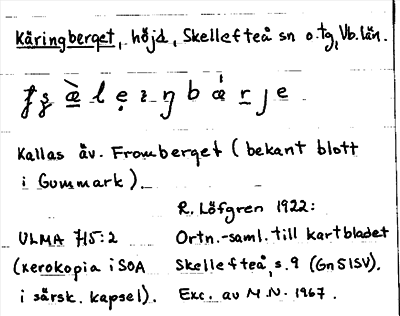 Käringberget, höjd, Skellefteå sn o. tg, Vb. län.
Kallas äv. Fromberget (bekant blott
i Gummark).
R. Löfgren 1922:
ULMA 715:2 Ortn.-saml. till kartbladet
(xerokopia i SOA Skellefteå, s. 9 (Gn51SV).
i särsk. kapsel). Exc. av M.N. 1967.